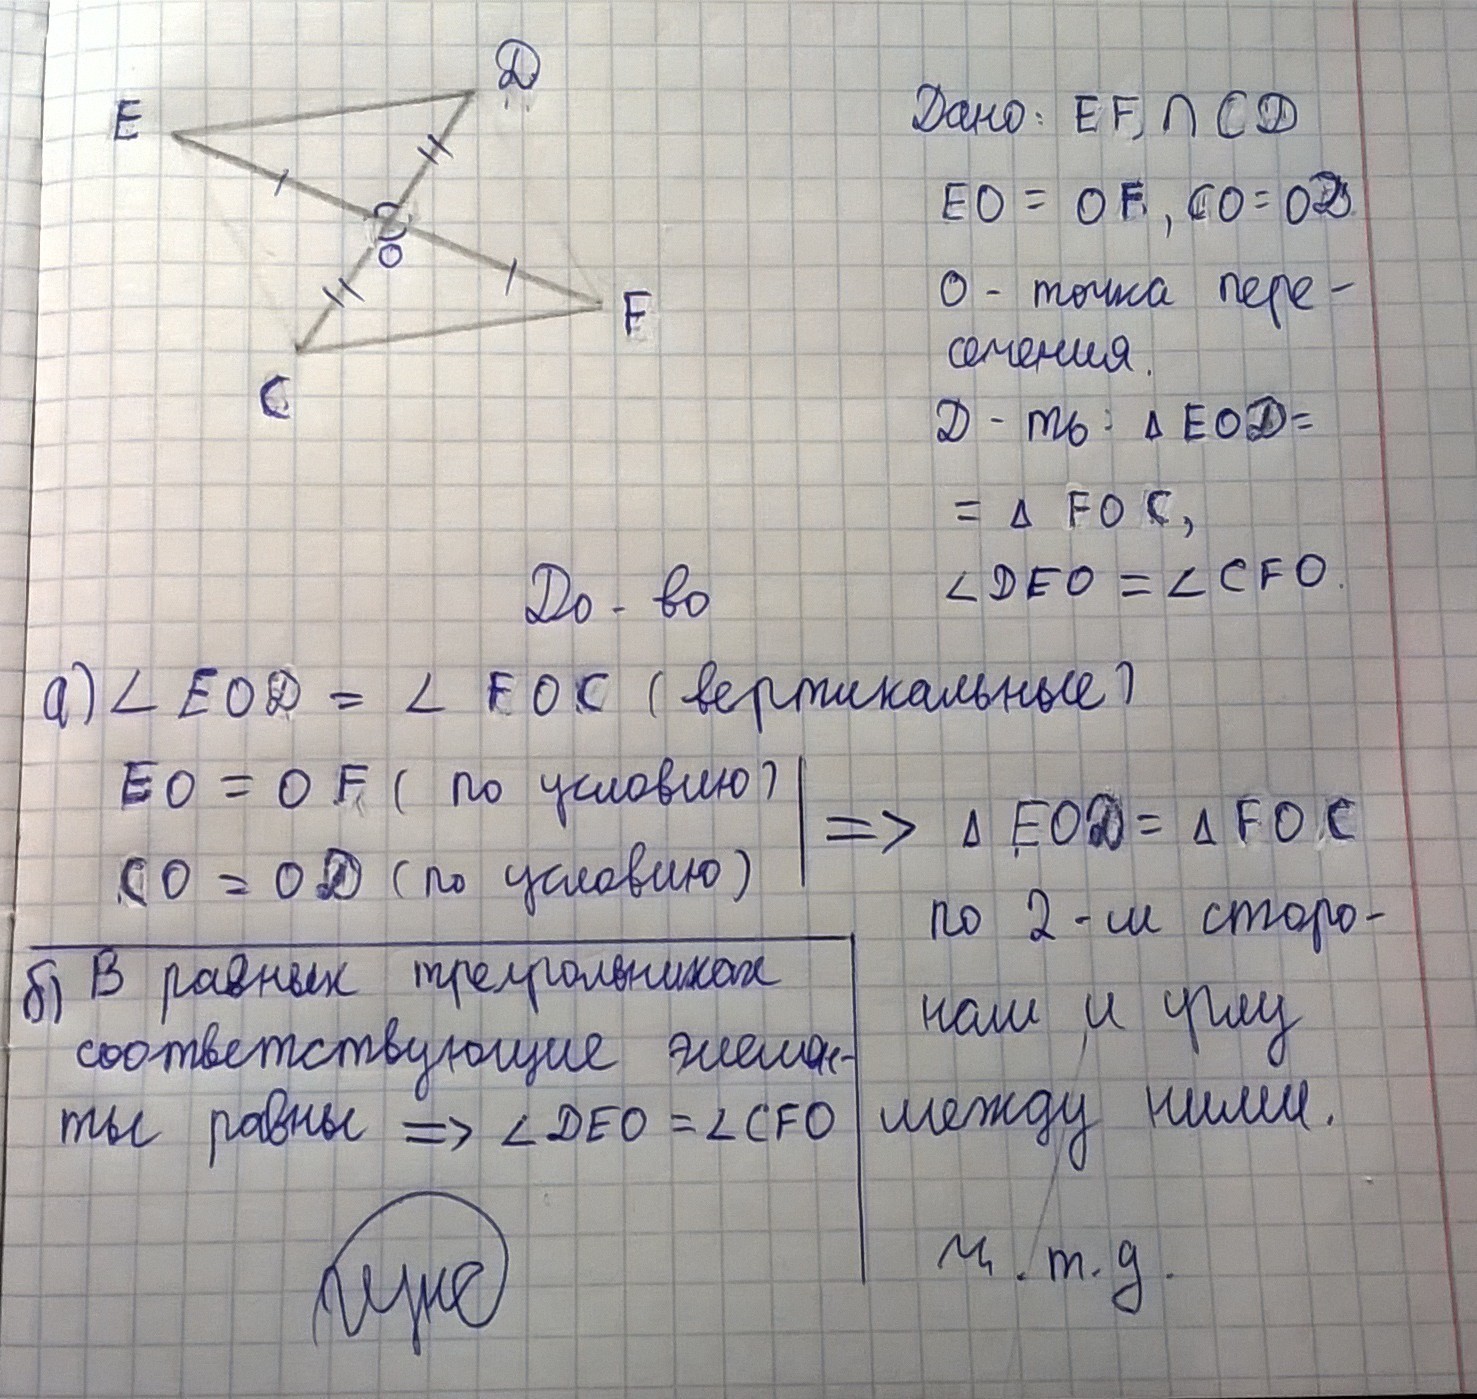 E
D
O
F
C
Дано: EF, ∩ CD
EO = OF, CO = OD
O - точка пере-
сечения.
Д - ть: ∆ EOD =
= ∆ FOC,
∠DEO = ∠CFO.
До - во
а) ∠ EOD = ∠ FOC (вертикальные)
EO = OF (по условию)
CO = OD (по условию)
=> ∆ EOD = ∆ FOC
по 2-м сторо-
нам и углу
между ними.
ч. т. д.
б) В равных треугольниках
соответствующие элемен-
ты равны => ∠DEO = ∠CFO